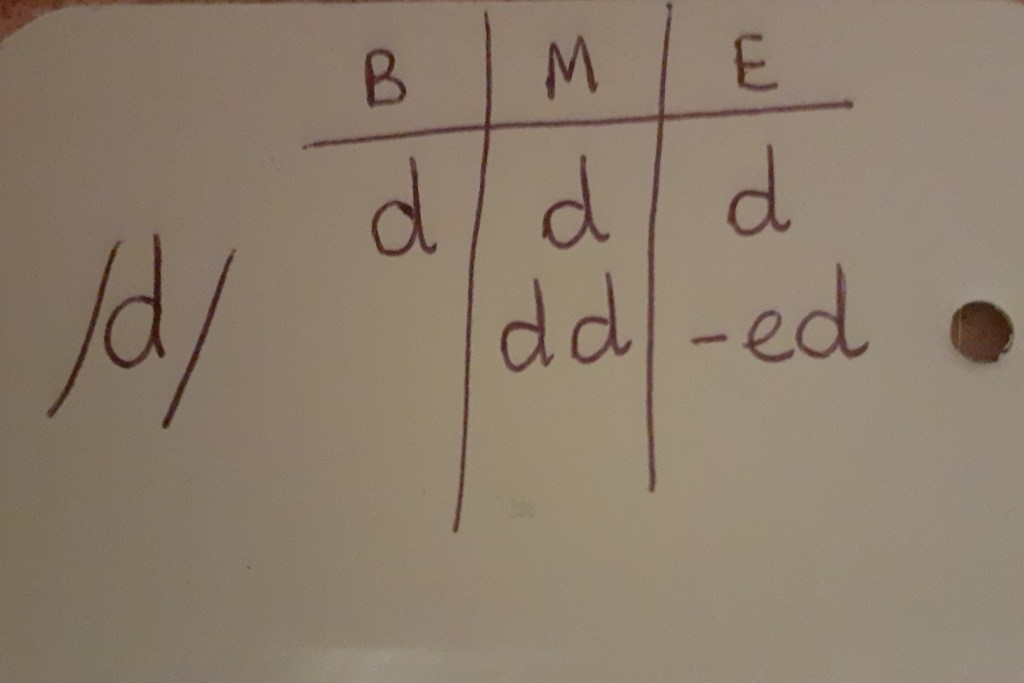 B M E
d d d
/d/ dd -ed